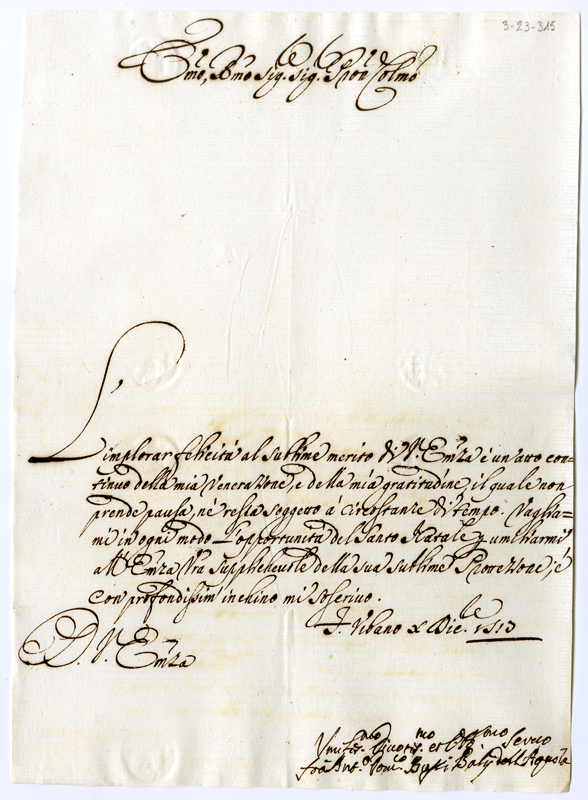 3-23-315
Em̃o, Rm̃o Sig.re Sig.re Pron Colmo
L'implorar felicità al sublime merito di V.ra Em̃za è un'atto con=
tinuo della mia Venerazione, e della mia gratitudine, il quale non
prende pausa, nè resta soggetto à Circostanze di tempo. Vaglia=
mi in ogni modo l'opportunità del Santo Natale p umiliarmi
all' Em̃za Vra Supplichevole della sua sublime Protezione; è
con profondissim inchino mi soscrivo.
Di V. Em̃za
Vrbano x Dic.re 1713
Vmiliss.mo Divotis.mo et Obb.mo Servo
fra Ant.o Bali dell'